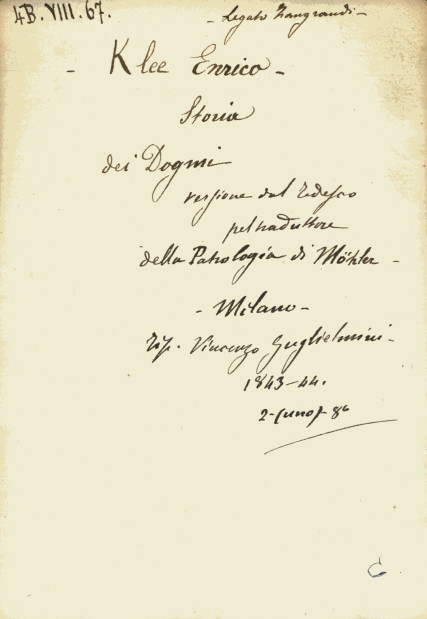 4B. VIII. 67.
- Legato Zangrandi -
- Klee Enrico -
Storia
dei Dogmi
versione dal Tedesco
pel traduttore
della Patrologia di Möhler -
- Milano -
Tip. Vincenzo Guglielmini -
1843-44.
2-(uno)- 8º
C